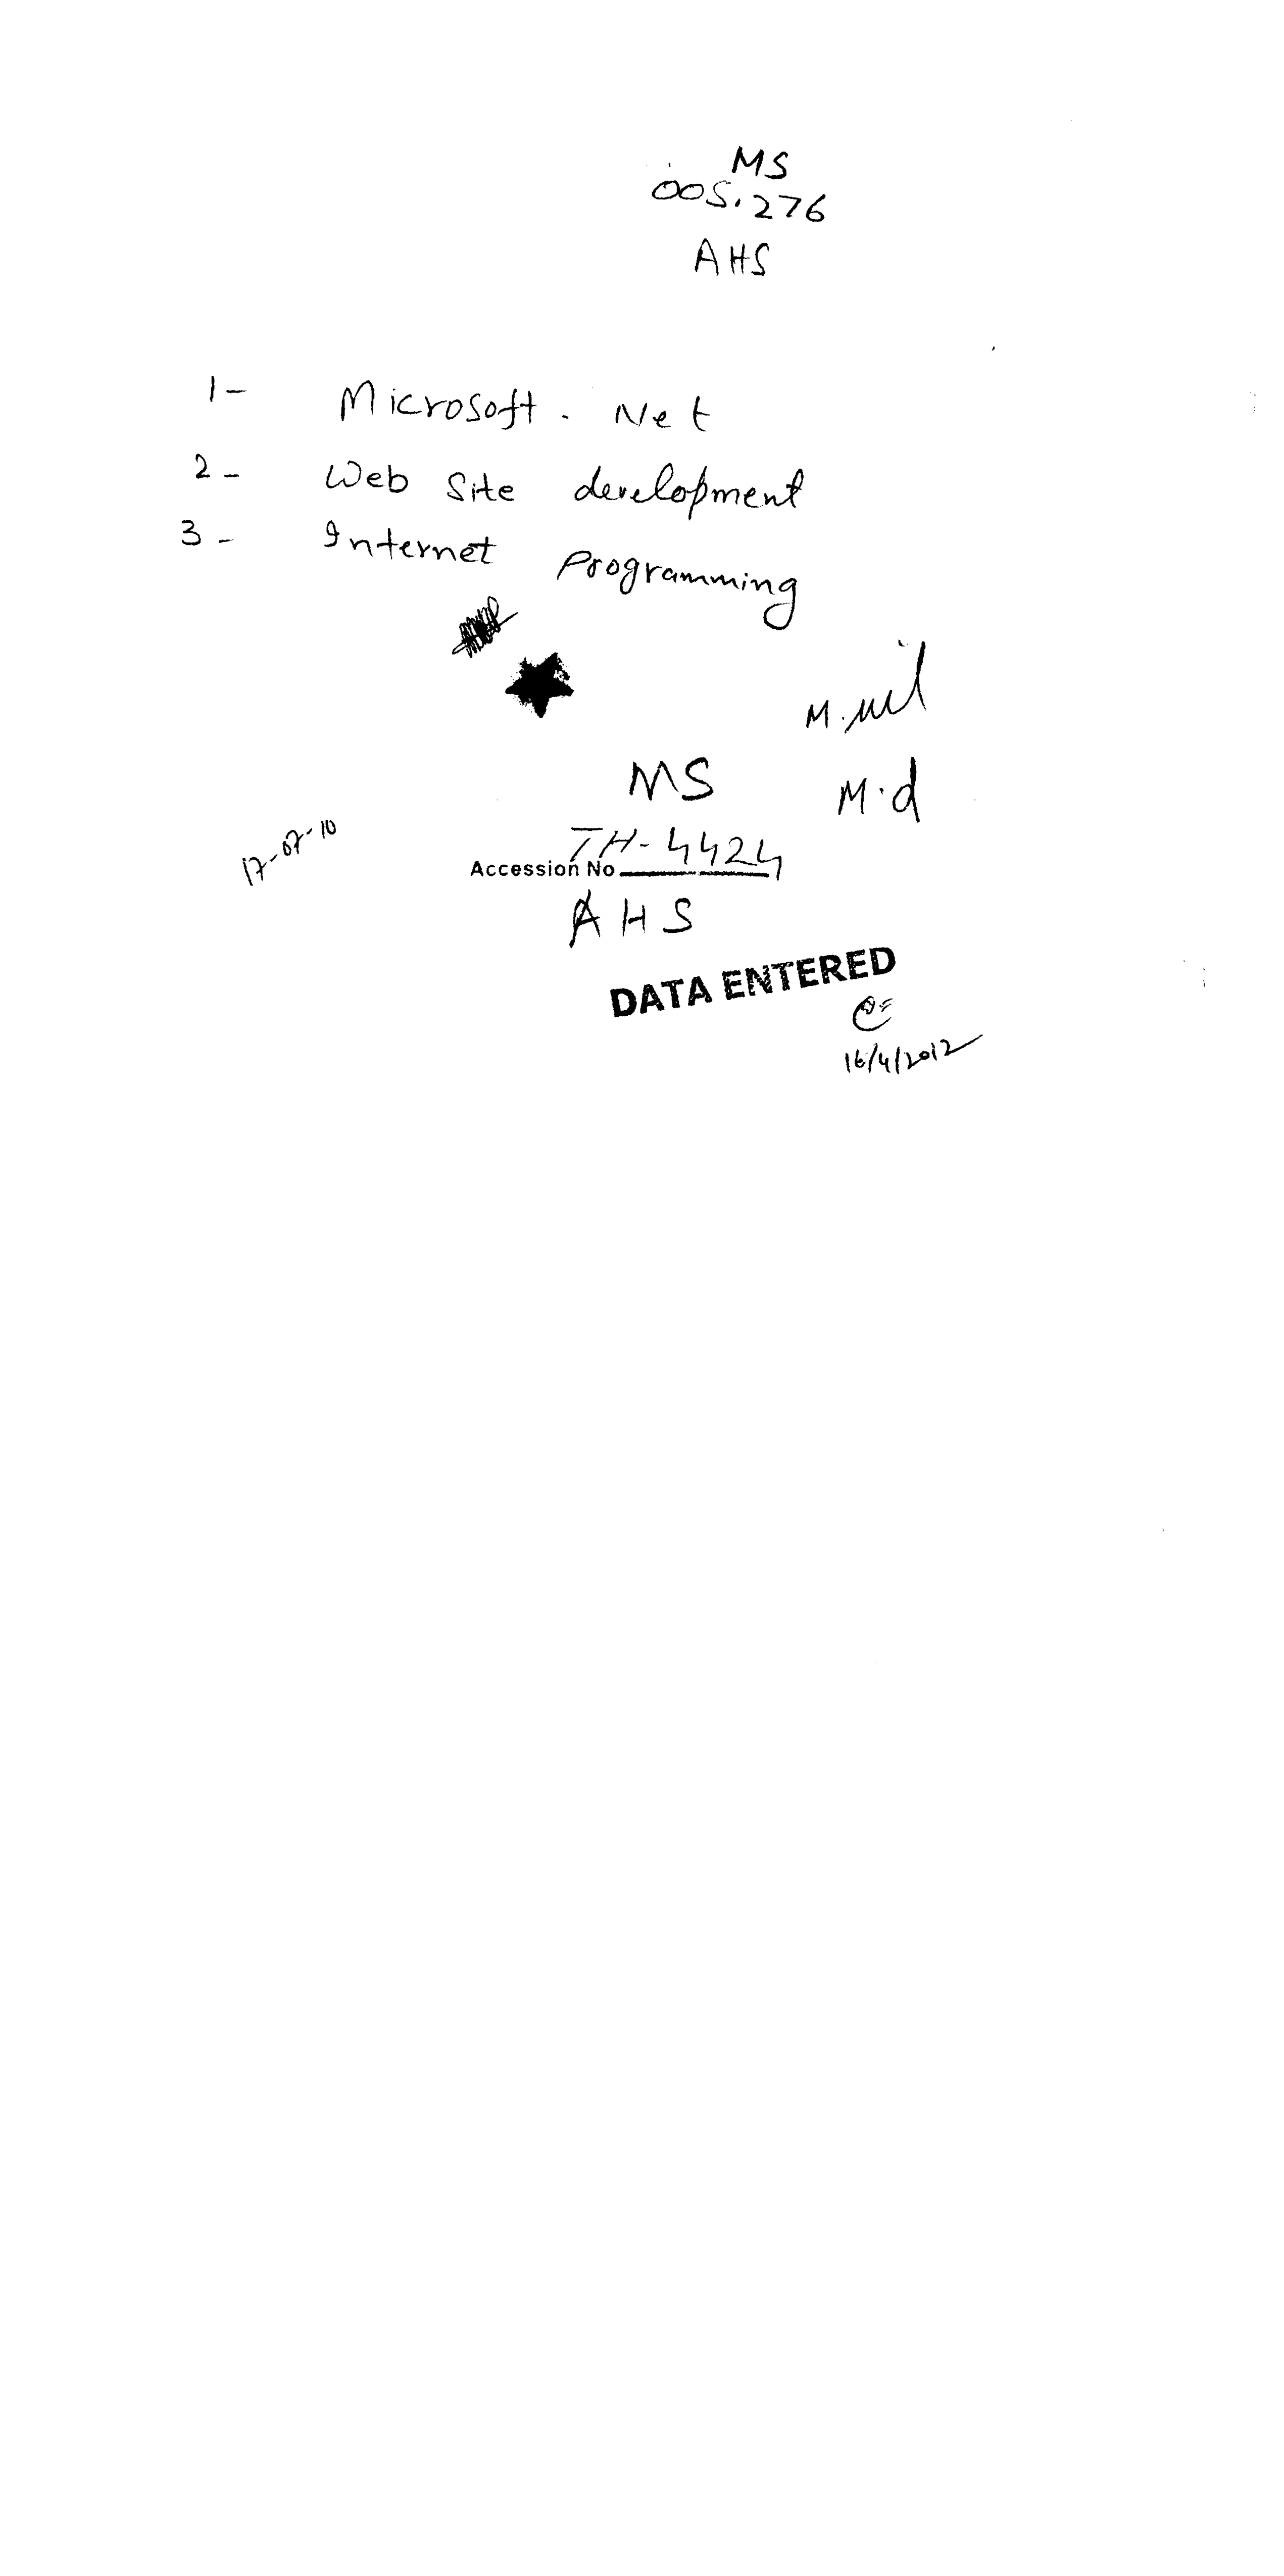 MS
005.276
AHS
1- Microsoft. Net
2- Web Site development
3- Internet Programming
MS
M.d
17-07-10
Accession No TH-4424
AHS
DATA ENTERED
16/4/2012